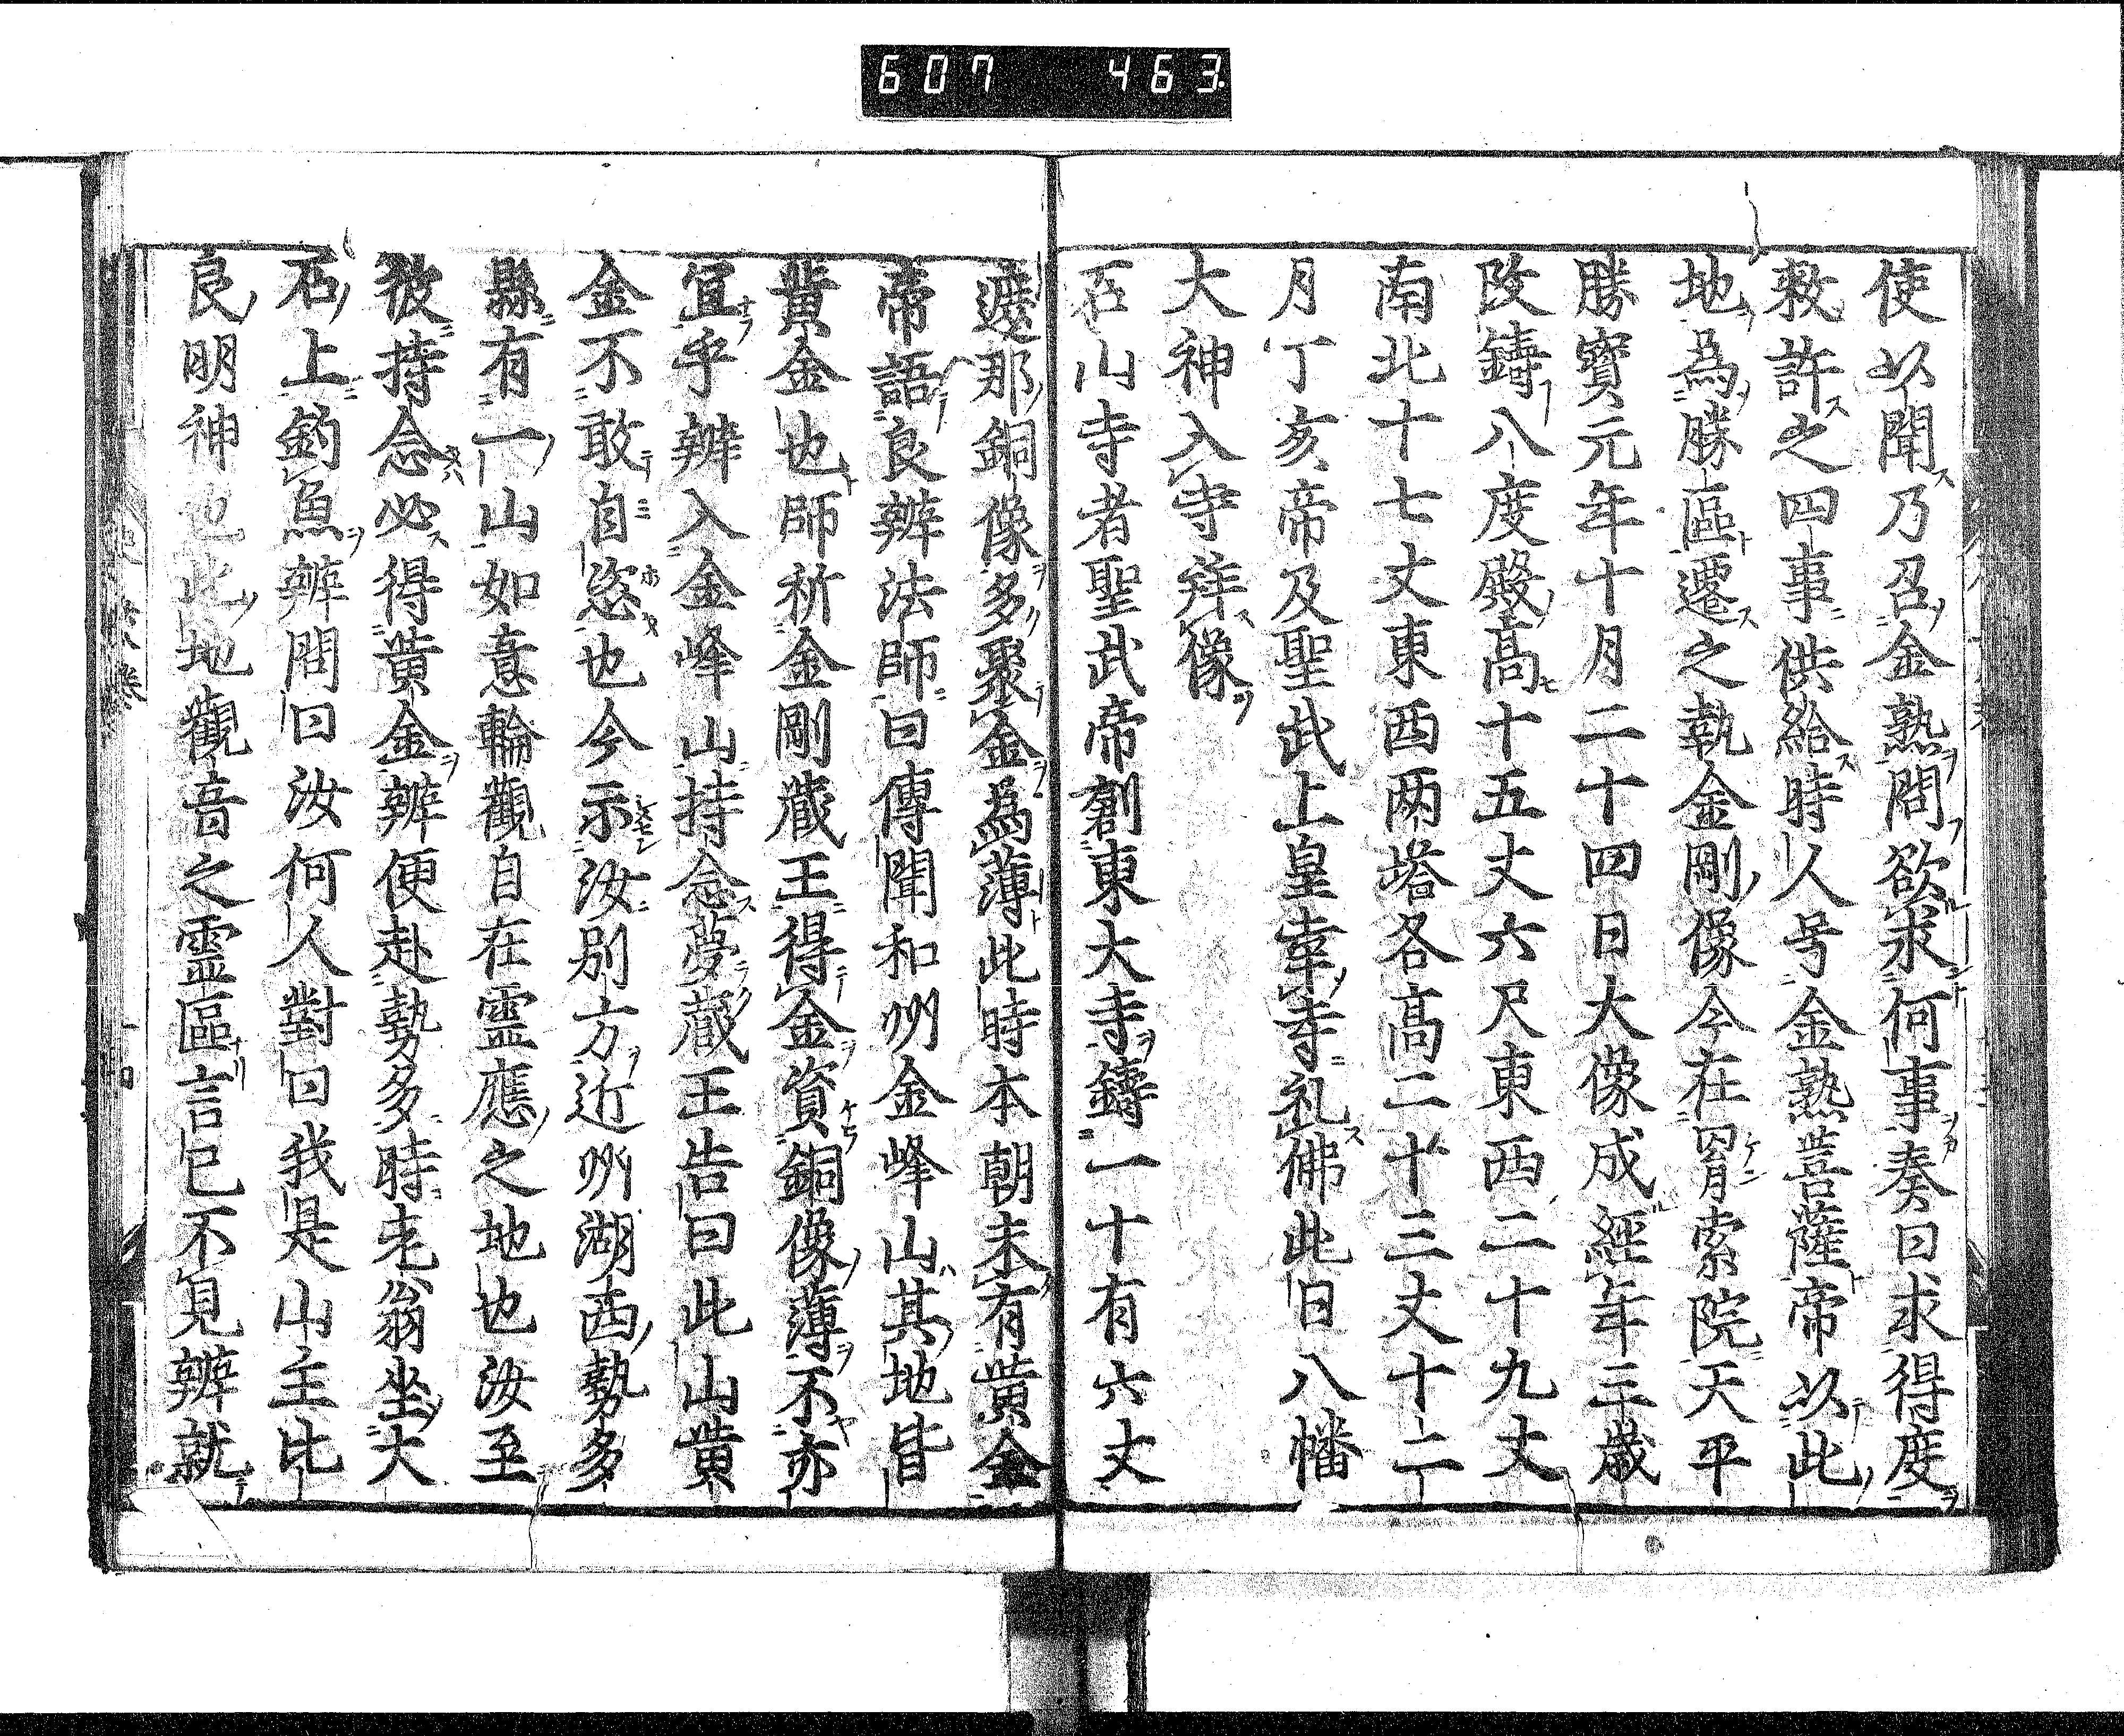 607 463
使以聞乃召金熟問欲求何事奏曰求得度
敕許之四事供給時人号金熟菩薩帝以此
地為勝區遷之執金剛像今在羂索院天平
勝寳元年十月二十四日大像成經年三歲
改鑄八度殿高十五丈六尺東西二十九丈
南北十七丈東西兩塔各高二十三丈十二
月丁亥帝及聖武上皇幸寺礼佛此日八幡
大神入寺拜像
石山寺者聖武帝創東大寺鑄一十有六丈
遮那銅像多聚金為薄此時本朝未有黄金
帝語良辨法師曰傳聞和州金峰山其地皆
黄金也師祈金剛藏王得金資銅像薄不亦
宜乎辨入金峰山持念夢藏王告曰此山黄
金不敢自恣也今示汝別方近州湖西勢多
縣有一山如意輪觀自在靈應之地也汝至
彼持念必得黄金辨便赴勢多時老翁坐大
石上釣魚辨問曰汝何人對曰我是山主比
良明神也此地觀音之靈區言已不見辨就